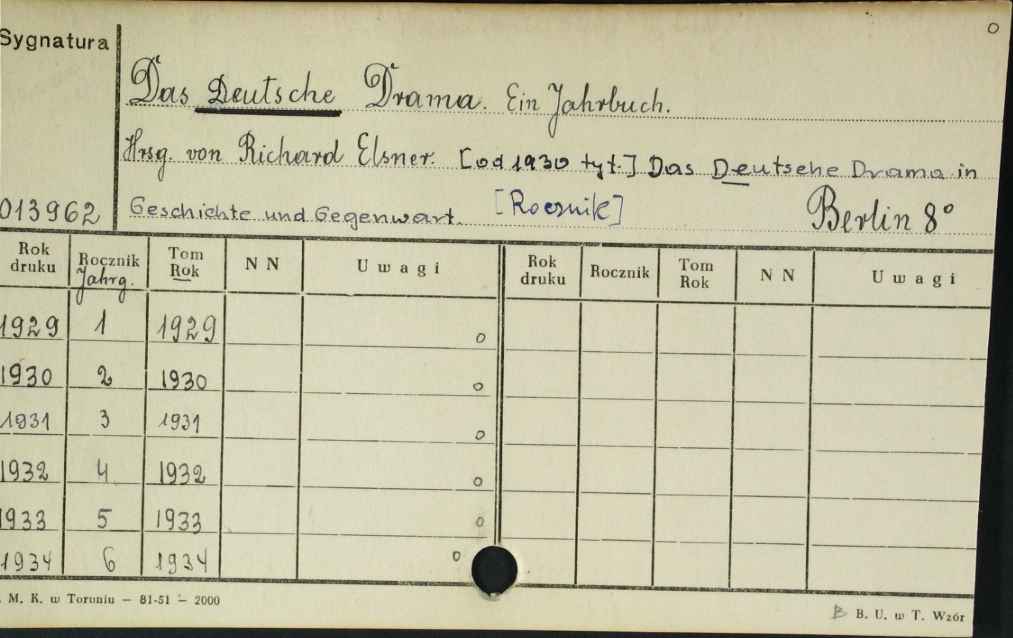 Sygnatura
Das Deutsche Drama. Ein Jahrbuch.
Hrsg. von Richard Elsner. [od 1930 tyt.] Das Deutsche Drama in
013962 Geschichte und Gegenwart. [Rocznik] Berlin 8°
Rok druku Rocznik Jahrg. Tom Rok N N Uwagi Rok druku Rocznik Tom Rok N N Uwagi
1929 1 1929 o
1930 2 1930 o
1931 3 1931 o
1932 4 1932 o
1933 5 1933 o
1934 6 1934 o
. M. K. w Toruniu — 81-51 — 2000
B B. U. w T. Wzór